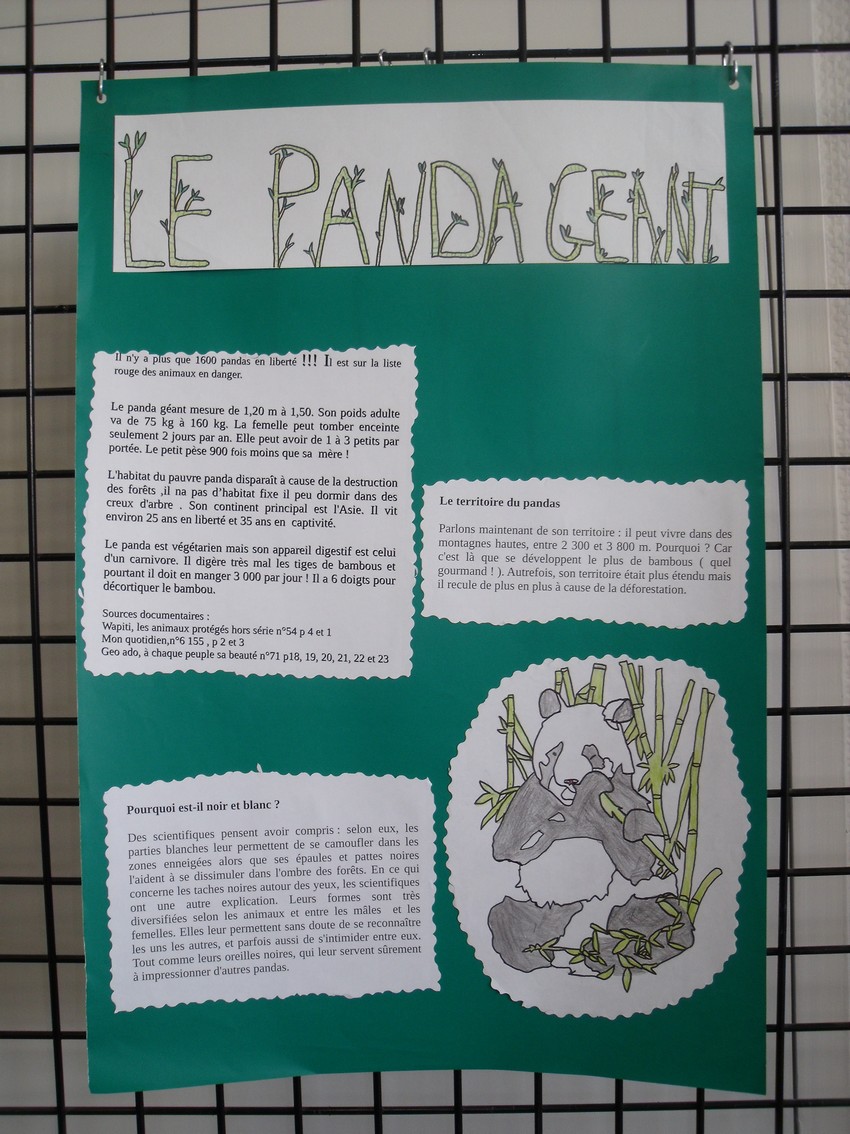 LE PANDA GEANT
Il n'y a plus que 1600 pandas en liberté !!! Il est sur la liste
rouge des animaux en danger.
Le panda géant mesure de 1,20 m à 1,50. Son poids adulte
va de 75 kg à 160 kg. La femelle peut tomber enceinte
seulement 2 jours par an. Elle peut avoir de 1 à 3 petits par
portée. Le petit pèse 900 fois moins que sa mère !
L'habitat du pauvre panda disparaît à cause de la destruction
des forêts ,il na pas d'habitat fixe il peu dormir dans des
creux d'arbre . Son continent principal est l'Asie. Il vit
environ 25 ans en liberté et 35 ans en captivité.
Le panda est végétarien mais son appareil digestif est celui
d'un carnivore. Il digère très mal les tiges de bambous et
pourtant il doit en manger 3 000 par jour ! Il a 6 doigts pour
décortiquer le bambou.
Sources documentaires :
Wapiti, les animaux protégés hors série n°54 p 4 et 1
Mon quotidien,n°6 155 , p 2 et 3
Geo ado, à chaque peuple sa beauté n°71 p18, 19, 20, 21, 22 et 23
Le territoire du pandas
Parlons maintenant de son territoire : il peut vivre dans des
montagnes hautes, entre 2 300 et 3 800 m. Pourquoi ? Car
c'est là que se développent le plus de bambous ( quel
gourmand ! ). Autrefois, son territoire était plus étendu mais
il recule de plus en plus à cause de la déforestation.
Pourquoi est-il noir et blanc ?
Des scientifiques pensent avoir compris : selon eux, les
parties blanches leur permettent de se camoufler dans les
zones enneigées alors que ses épaules et pattes noires
l'aident à se dissimuler dans l'ombre des forêts. En ce qui
concerne les taches noires autour des yeux, les scientifiques
ont une autre explication. Leurs formes sont très
diversifiées selon les animaux et entre les mâles et les
femelles. Elles leur permettent sans doute de se reconnaître
les uns les autres, et parfois aussi de s'intimider entre eux.
Tout comme leurs oreilles noires, qui leur servent sûrement
à impressionner d'autres pandas.